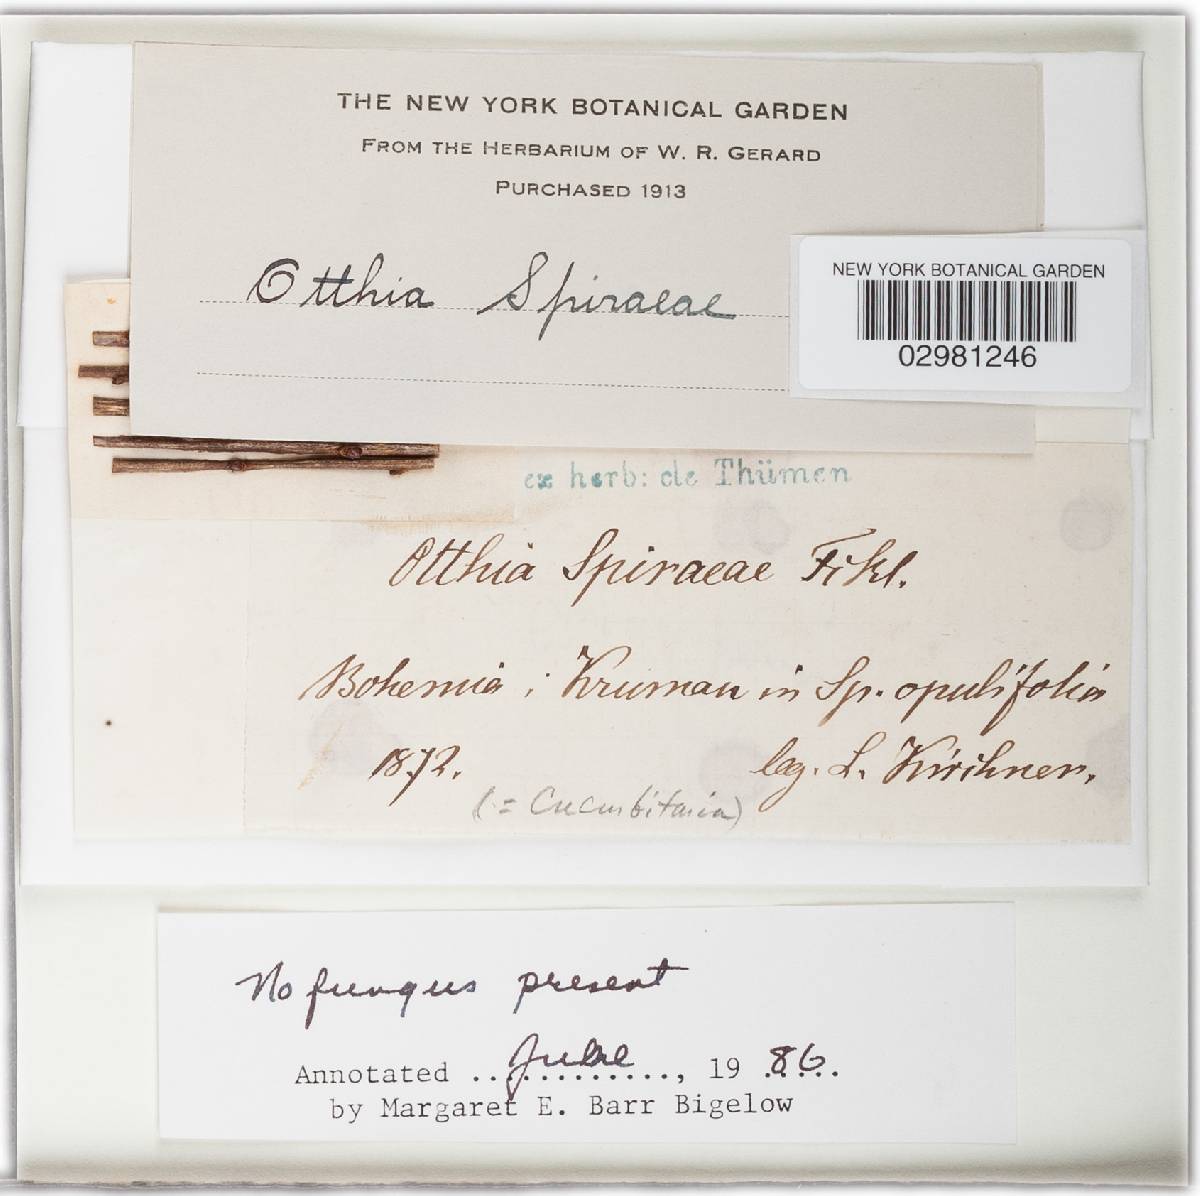 THE NEW YORK BOTANICAL GARDEN
FROM THE HERBARIUM OF W. R. GERARD
PURCHASED 1913
Otthia Spiraeae
NEW YORK BOTANICAL GARDEN
02981246
ex herb: de Thümen
Otthia Spiraeae Fckl.
Bohemia: Kruman in Sp. opulifolia
1872.
leg. L. Kirchner.
(= Cucurbitaria)
No fungus present
Annotated .. June ....., 19 86..
by Margaret E. Barr Bigelow